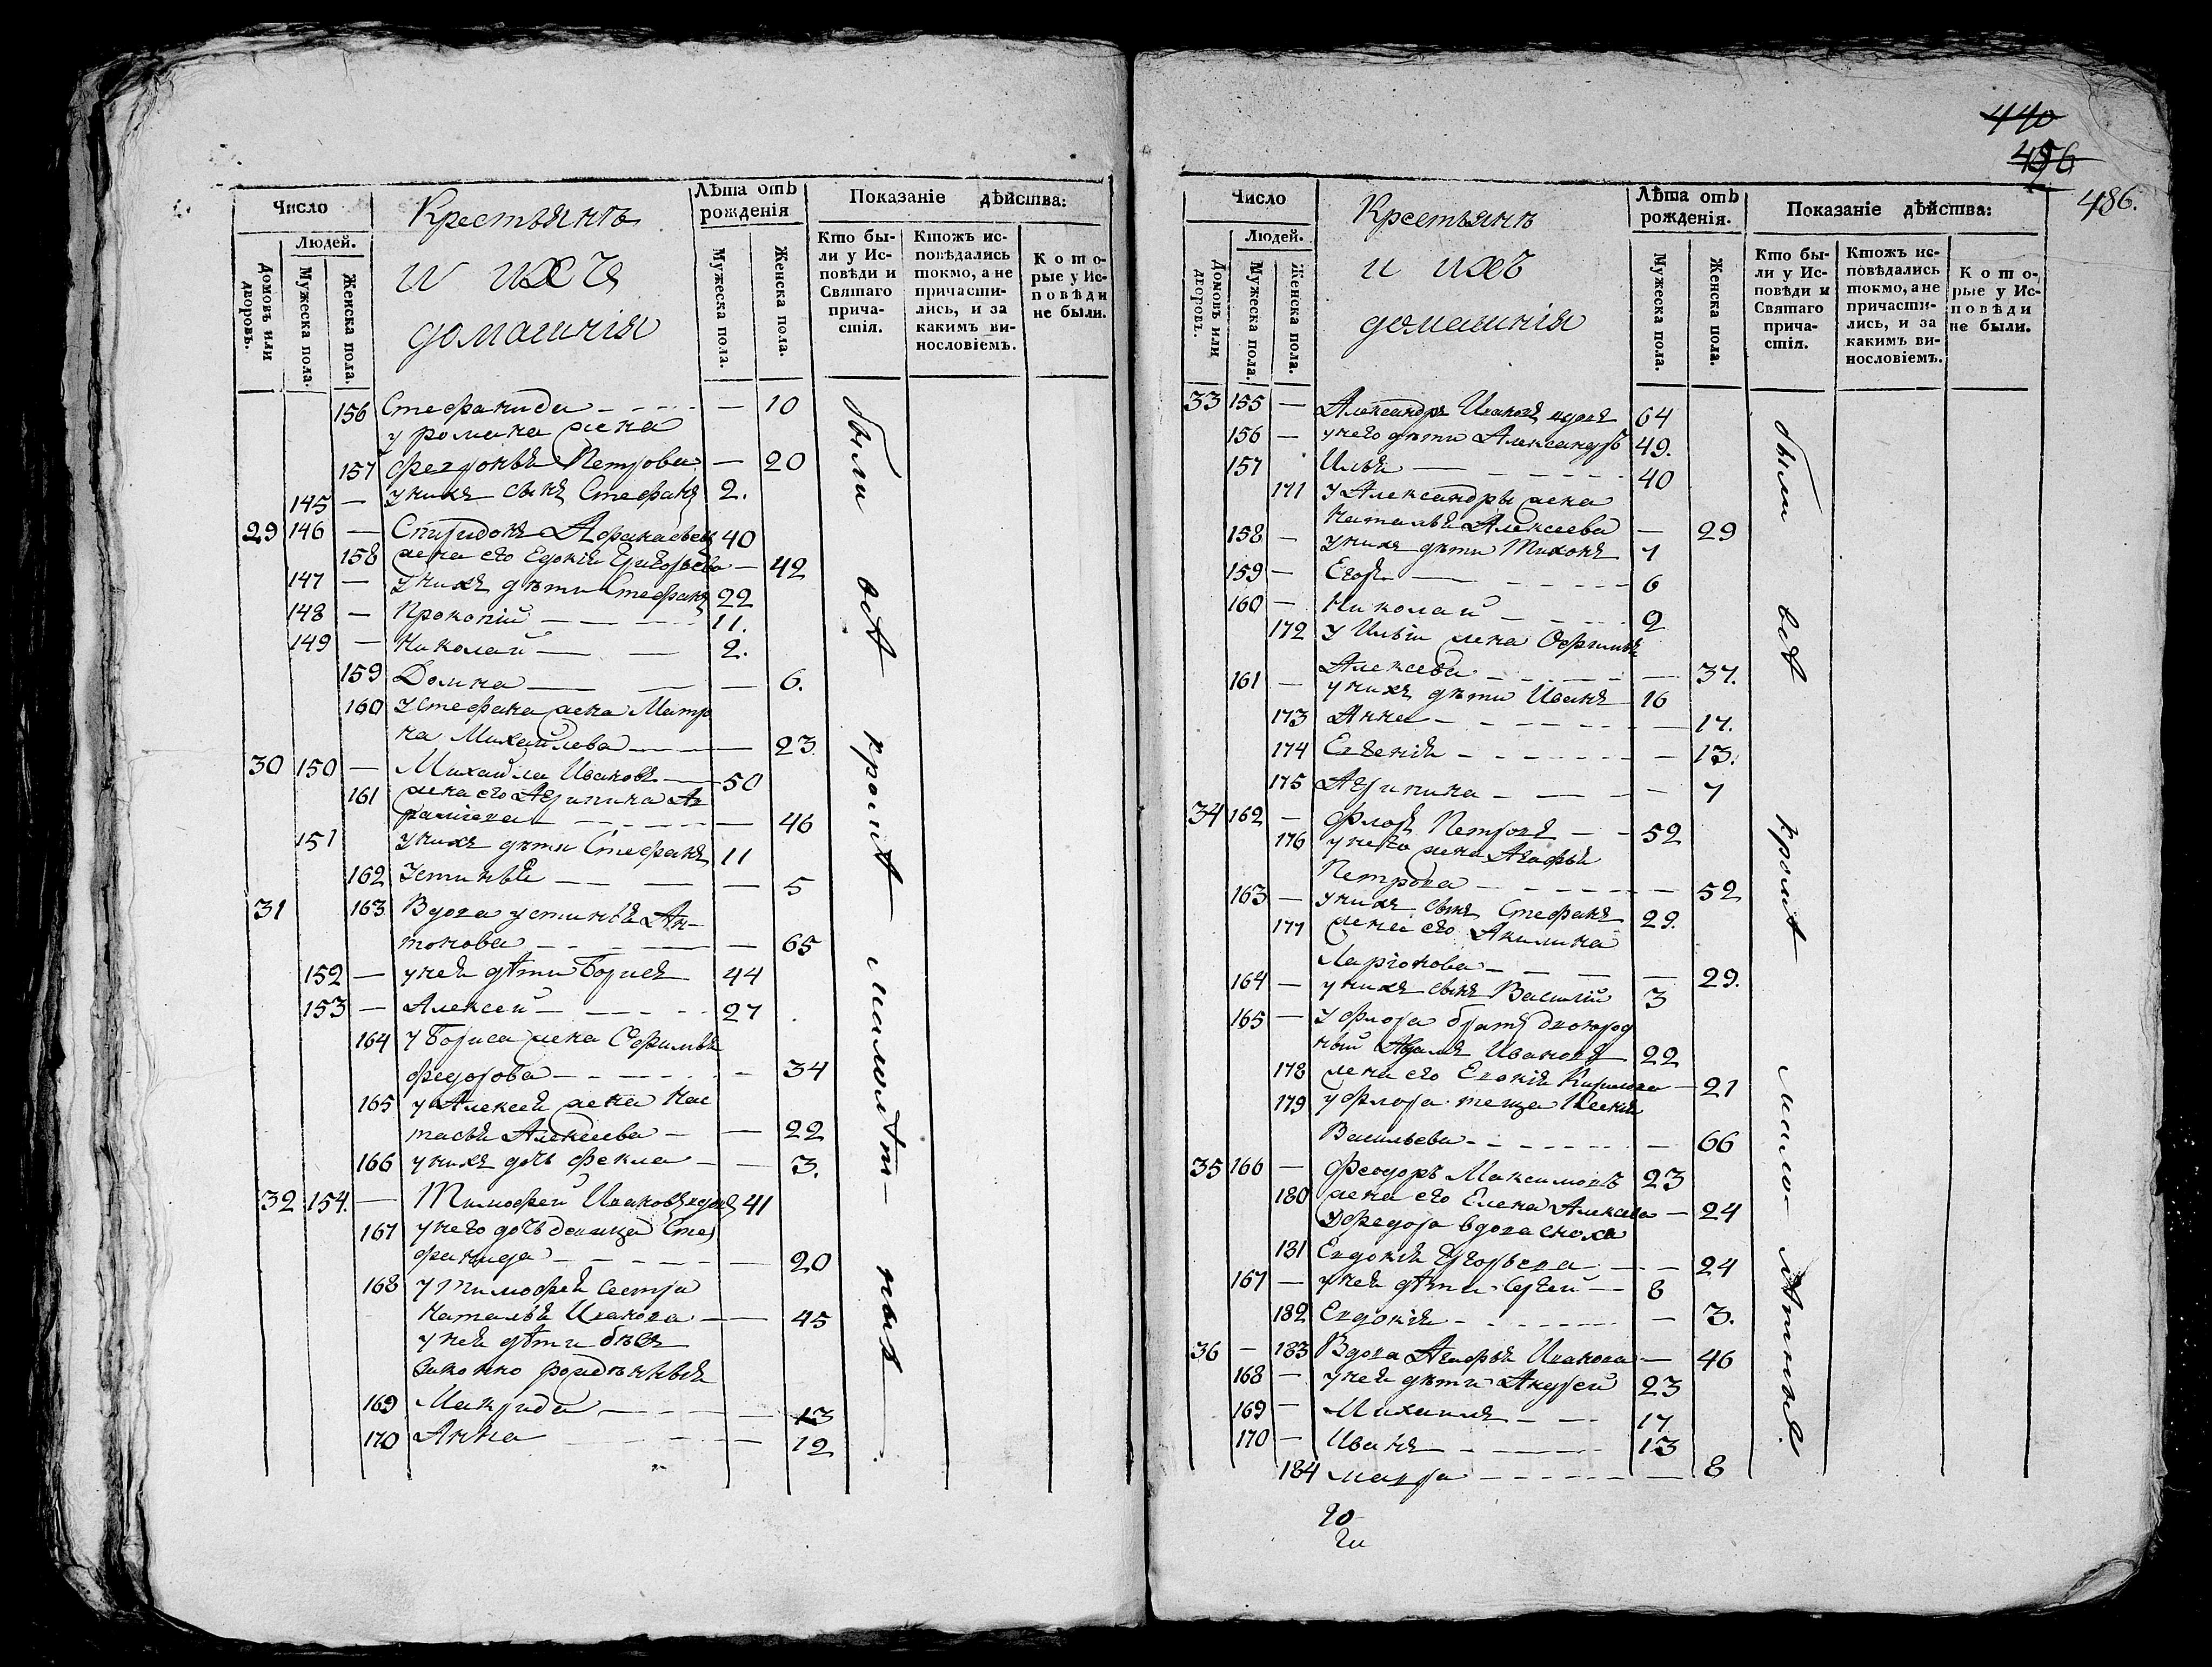 Число
Людей.
Домовъ или дворовъ.
Мужеска пола.
Женска пола.
Крестьянъ
и ихъ
домашнія
Лѣта отъ рожденія
Мужеска пола.
Женска пола.
Показаніе дѣйства:
Кто бы-
ли у Ис-
повѣди и
Святаго
прича-
стія.
Ктожъ ис-
повѣдались
токмо, а не
причасти-
лись, и за
какимъ ви-
нословіемъ.
Кото-
рые у Ис-
повѣди
не были.
156 Стефанида — 10
у романа жена
157 федонья Петрова — 20
145 — у нихъ сынъ Стефанъ 2.
29 146 — Спиридонъ Афанасьевъ 40
158 жена его Едокія Григорьева — 42
147 — у нихъ дѣти Стефанъ 22
148 — Прокопій 11.
149 — Николай 2.
159 Домна — 6.
160 у Стефана жена Матро
на Михайлова — 23.
30 150 — Михайла Ивановъ 50
161 жена его Агрипина
— 46
151 у нихъ дѣти Стефанъ 11
162 Устинья — 5
31 163 Вдова устинья Ан-
тонова — 65
152 — у ней дѣти Борисъ 44
153 — Алексей 27
164 у Бориса жена Ефимья
федорова — 34
165 у Алексея жена Нас
тасья Алексеева — 22
166 у нихъ дочь Фекла — 3.
32 154. — Тимофей Ивановъ вдовъ 41
167 у него дочь девица Сте
фанида — 20
168 у Тимофея сестра
Наталья Иванова — 45
у ней дѣти безъ
законно рожденныя
169 Макрида — 13
170 Анна — 12
были всѣ кромѣ малолѣт-ныя
440
456
486.
Число
Людей.
Домовъ или дворовъ.
Мужеска пола.
Женска пола.
Крестьянъ
и ихъ
домашнія
Лѣта отъ рожденія.
Мужеска пола.
Женска пола.
Показаніе дѣйства:
Кто бы-
ли у Ис-
повѣди и
Святаго
прича-
стія.
Ктожъ ис-
повѣдались
токмо, а не
причасти-
лись, и за
какимъ ви-
нословіемъ.
Кото-
рые у Ис-
повѣди
не были.
33 155 — Александръ Ивановъ вдовъ 64
156 — у него дѣти Александръ 49.
157 Илья 40
171 у Александры жена
Наталья Алексеева — 29
158 — у нихъ дѣти Тихонъ 7
159 — Егоръ 6
160 — Николай 2
172 у Ильи жена Офимья
Алексеева — 37.
161 — у нихъ дѣти Иванъ 16
173 Анна — 17.
174 Евгенія — 13.
175 Агрипина — 7
34 162 — Флоръ Петровъ 52
176 у него жена Агафья
Петрова — 52
163 — у нихъ сынъ Стефанъ 29.
177 жена его Акилина
Ларіонова — 29.
164 — у нихъ сынъ Василій 3
165 — у Флора братъ двоюрод
ный Ивановъ 22
178 жена его Евдокія Кирилова — 21
179 у Флора теща
Васильева — 66
35 166 — Феодоръ Максимовъ 23
180 жена его Елена Алексеева — 24
у Федора вдова сноха
181 Евдокія Егорьева — 24
167 — у ней дѣти Сергей 8
182 Евдокія — 3.
36 — 183 Вдова Агафья Иванова — 46
168 — у ней дѣти Андрей 23
169 — Михаилъ 17
170 — Иванъ 13
184 марфа — 8
были всѣ кромѣ мало-лѣтныя.